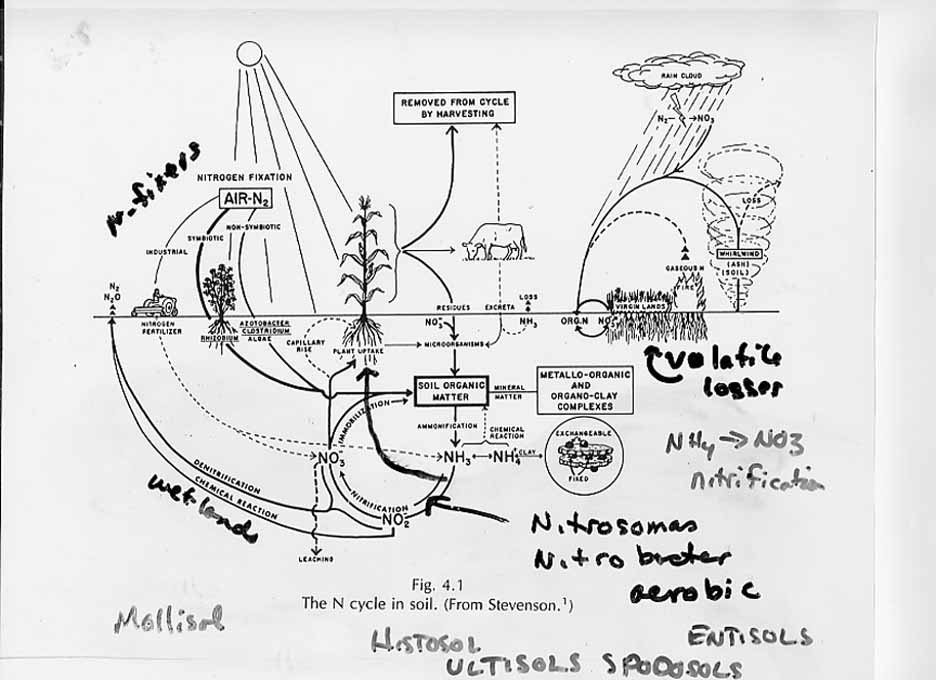 RAIN CLOUD
N2 → NO3
REMOVED FROM CYCLE
BY HARVESTING
N-fixers
NITROGEN FIXATION
AIR-N2
SYMBIOTIC
NON-SYMBIOTIC
INDUSTRIAL
LOSS
WHIRLWIND
(ASH)
(SOIL)
GASEOUS N
FIRE
VIRGIN LANDS
N2
N2O
RESIDUES
EXCRETA
LOSS
NH3
NO3-
ORG.N
NITROGEN
FERTILIZER
RHIZOBIUM
AZOTOBACTER
CLOSTRIDIUM
ALGAE
CAPILLARY
RISE
PLANT UPTAKE
MICROORGANISMS
volatile
losser
SOIL ORGANIC
MATTER
MINERAL
MATTER
METALLO-ORGANIC
AND
ORGANO-CLAY
COMPLEXES
IMMOBILIZATION
AMMONIFICATION
CHEMICAL
REACTION
EXCHANGEABLE
FIXED
NO3-
NH3 ↔ NH4+
CLAY
NH4 → NO3
nitrification
DENITRIFICATION
CHEMICAL REACTION
wetland
NITRIFICATION
NO2-
LEACHING
Nitrosomas
Nitrobacter
aerobic
Fig. 4.1
The N cycle in soil. (From Stevenson.1)
Mollisol
HISTOSOL
ENTISOLS
ULTISOLS SPODOSOLS